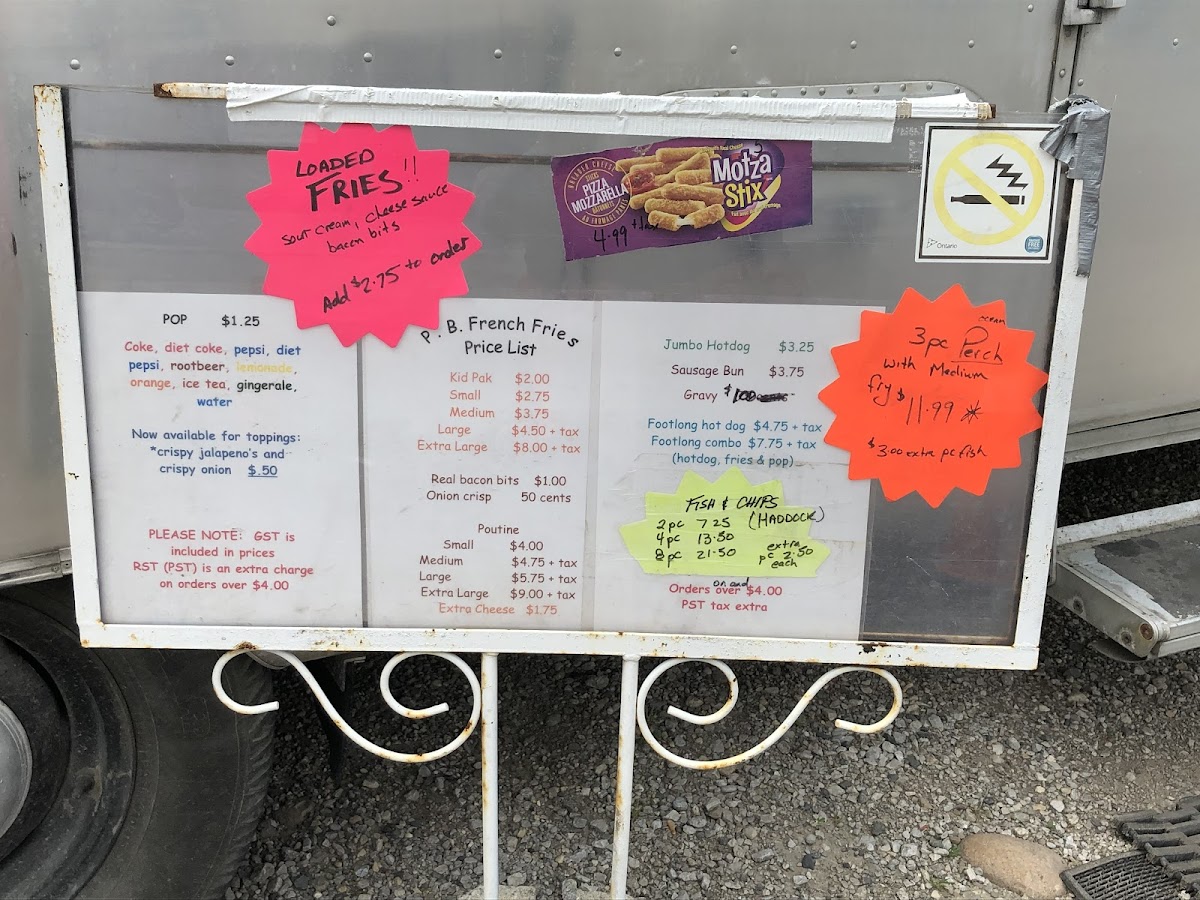 LOADED
FRIES!!
sour cream, cheese sauce
bacon bits
Add $2.75 to order
BREADED CHEESE
STICKS
PIZZA
MOZZARELLA
BÂTONNETS
AU FROMAGE PANÉS
with Real Cheese
Motza
Stix
4.99 + tax
Ontario
POP $1.25
Coke, diet coke, pepsi, diet
pepsi, rootbeer, lemonade,
orange, ice tea, gingerale,
water
Now available for toppings:
*crispy jalapeno's and
crispy onion $.50
PLEASE NOTE: GST is
included in prices
RST (PST) is an extra charge
on orders over $4.00
P. B. French Fries
Price List
Kid Pak $2.00
Small $2.75
Medium $3.75
Large $4.50 + tax
Extra Large $8.00 + tax
Real bacon bits $1.00
Onion crisp 50 cents
Poutine
Small $4.00
Medium $4.75 + tax
Large $5.75 + tax
Extra Large $9.00 + tax
Extra Cheese $1.75
Jumbo Hotdog $3.25
Sausage Bun $3.75
Gravy $1.00
Footlong hot dog $4.75 + tax
Footlong combo $7.75 + tax
(hotdog, fries & pop)
FISH & CHIPS
2pc 7.25 (HADDOCK)
4pc 13.50
8pc 21.50
extra
pc 2.50
each
on and
Orders over $4.00
PST tax extra
OCEAN
3pc Perch
with Medium
fry $11.99 *
$3.00 extra pc fish